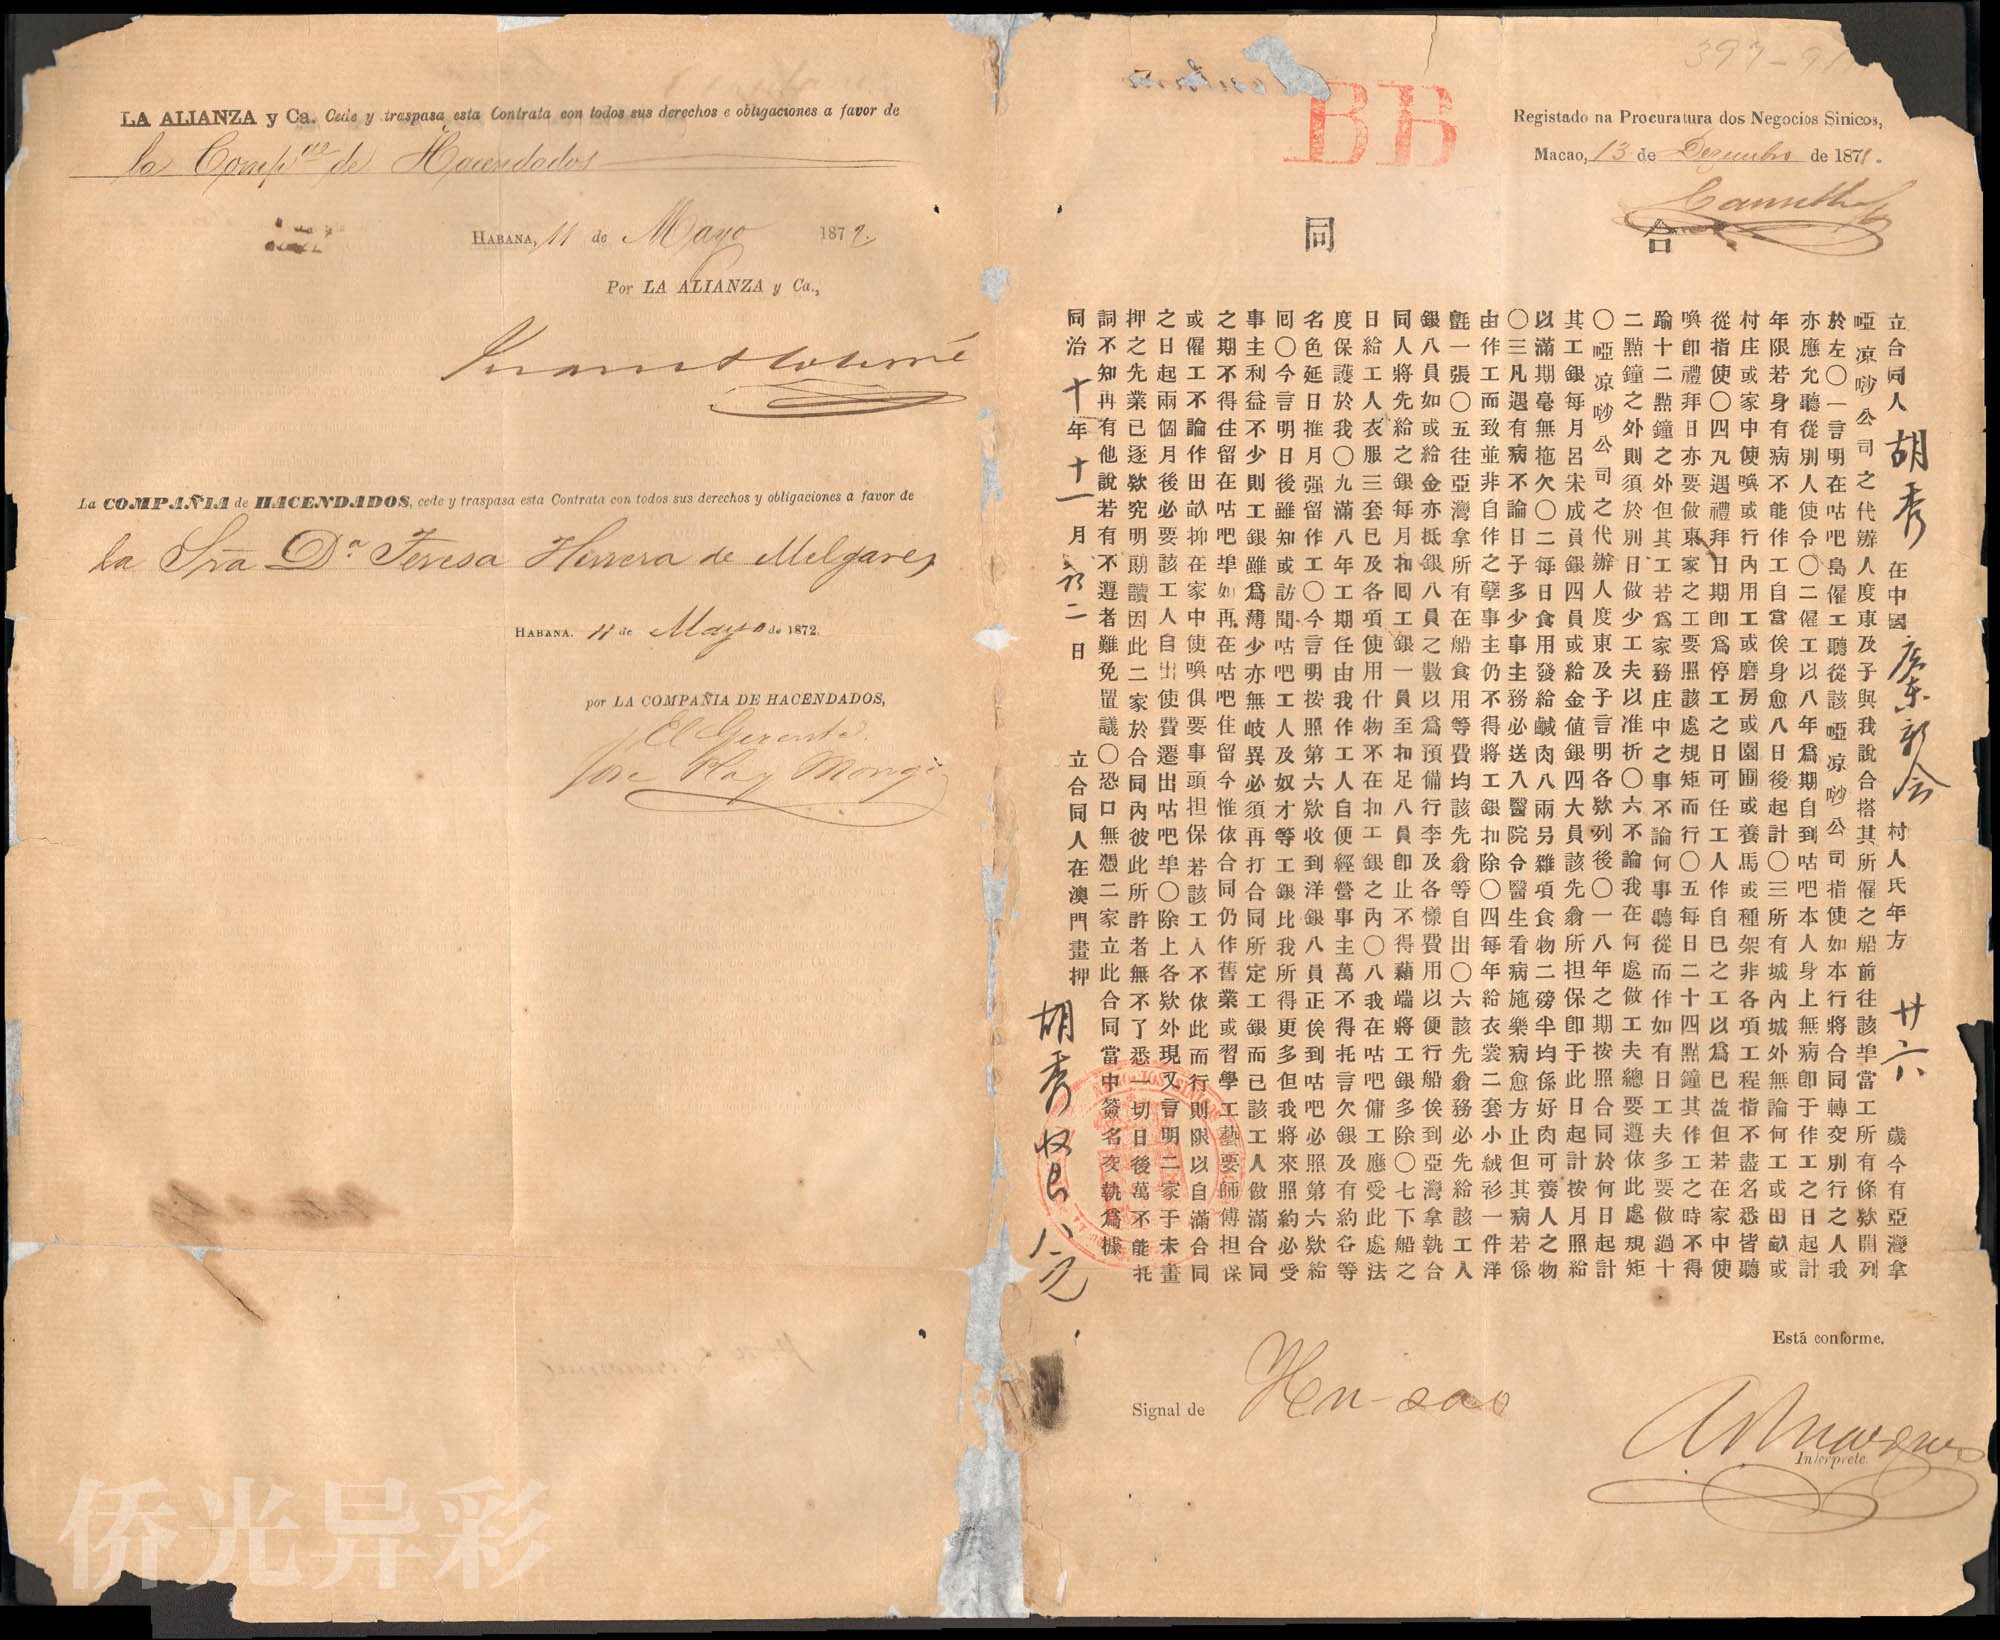 LA ALIANZA y Ca. Cede y traspasa esta Contrata con todos sus derechos e obligaciones a favor de
la Compñia de Hacendados
HABANA, 11 de Mayo 1872.
Por LA ALIANZA y Ca.,
La COMPAÑIA de HACENDADOS, cede y traspasa esta Contrata con todos sus derechos y obligaciones a favor de
la Sra Da Teresa Herrera de Melgares
HABANA. 11 de Mayo de 1872.
por LA COMPAÑIA DE HACENDADOS,
El Gerente
397-91
BB
Registado na Procuratura dos Negocios Sinicos,
Macao, 13 de Dezembro de 1871.
合同
立合同人胡秀在中國廣東新会村人氏年方廿六歲今有亞灣拿
啞凉吵公司之代辦人度東及子與我說合搭其所僱之船前往該埠當工所有條欵開列
於左〇一言明在咕吧島僱工聽從該啞凉吵公司指使如本行將合同轉交別行之人我
亦應允聽從別人使令〇二僱工以八年爲期自到咕吧本人身上無病卽于作工之日起計
年限若身有病不能作工自當俟身愈八日後起計〇三所有城內城外無論何工或田畝或
村庄或家中使喚或行內用工或磨房或園圃或養馬或種架非各項工程指不盡名悉皆聽
從指使〇四凡遇禮拜日期卽爲停工之日可任工人作自已之工以爲已益但若在家中使
喚卽禮拜日亦要做東家之工要照該處規矩而行〇五每日二十四點鐘其作工之時不得
踰十二點鐘之外但其工若爲家務庄中之事不論何事聽從而作如有日工夫多要做過十
二點鐘之外則須於別日做少工夫以准折〇六不論我在何處做工夫總要遵依此處規矩
〇啞凉吵公司之代辦人度東及子言明各欵列後〇一八年之期按照合同於何日起計
其工銀每月呂宋成員銀四員或給金值銀四大員該先翁所担保卽于此日起計按月照給
以滿期毫無拖欠〇二每日食用發給鹹肉八兩另雜項食物二磅半均係好肉可養人之物
〇三凡遇有病不論日子多少事主務必送入醫院令醫生看病施樂病愈方止但其病若係
由作工而致並非自作之孽事主仍不得將工銀扣除〇四每年給衣裳二套小絨衫一件洋
氈一張〇五往亞灣拿所有在船食用等費均該先翁等自出〇六該先翁務必先給該工人
銀八員如或給金亦抵銀八員之數以爲預備行李及各樣費用以便行船俟到亞灣拿執合
同人將先給之銀每月扣囘工銀一員至扣足八員卽止不得藉端將工銀多除〇七下船之
日給工人衣服三套已及各項使用什物不在扣工銀之內〇八我在咕吧傭工應受此處法
度保護於我〇九滿八年工期任由我作工人自便經營事主萬不得托言欠銀及有約各等
名色延日推月强留作工〇今言明按照第六欵收到洋銀八員正俟到咕吧必照第六欵給
囘〇今言明日後雖知或訪聞咕吧工人及奴才等工銀比我所得更多但我將來照約必受
事主利益不少則工銀雖爲薄少亦無岐異必須再打合同所定工銀而已該工人做滿合同
之期不得住留在咕吧埠如再在咕吧住留今惟依合同仍作舊業或習學工藝要師傅担保
或僱工不論作田畝抑在家中使喚俱要事頭担保若該工人不依此而行則限以自滿合同
之日起兩個月後必要該工人自出使費遷出咕吧埠〇除上各欵外現又言明二家于未畫
押之先業已逐欵究明朗讀因此二家於合同內彼此所許者無不了悉一切日後萬不能托
詞不知再有他說若有不遵者難免置議〇恐口無憑二家立此合同當中簽名交執爲據
同治十年十一月初二日 立合同人在澳門畫押
胡秀收艮八元
Está conforme.
Signal de Hen-sao
Interprete
侨光异彩